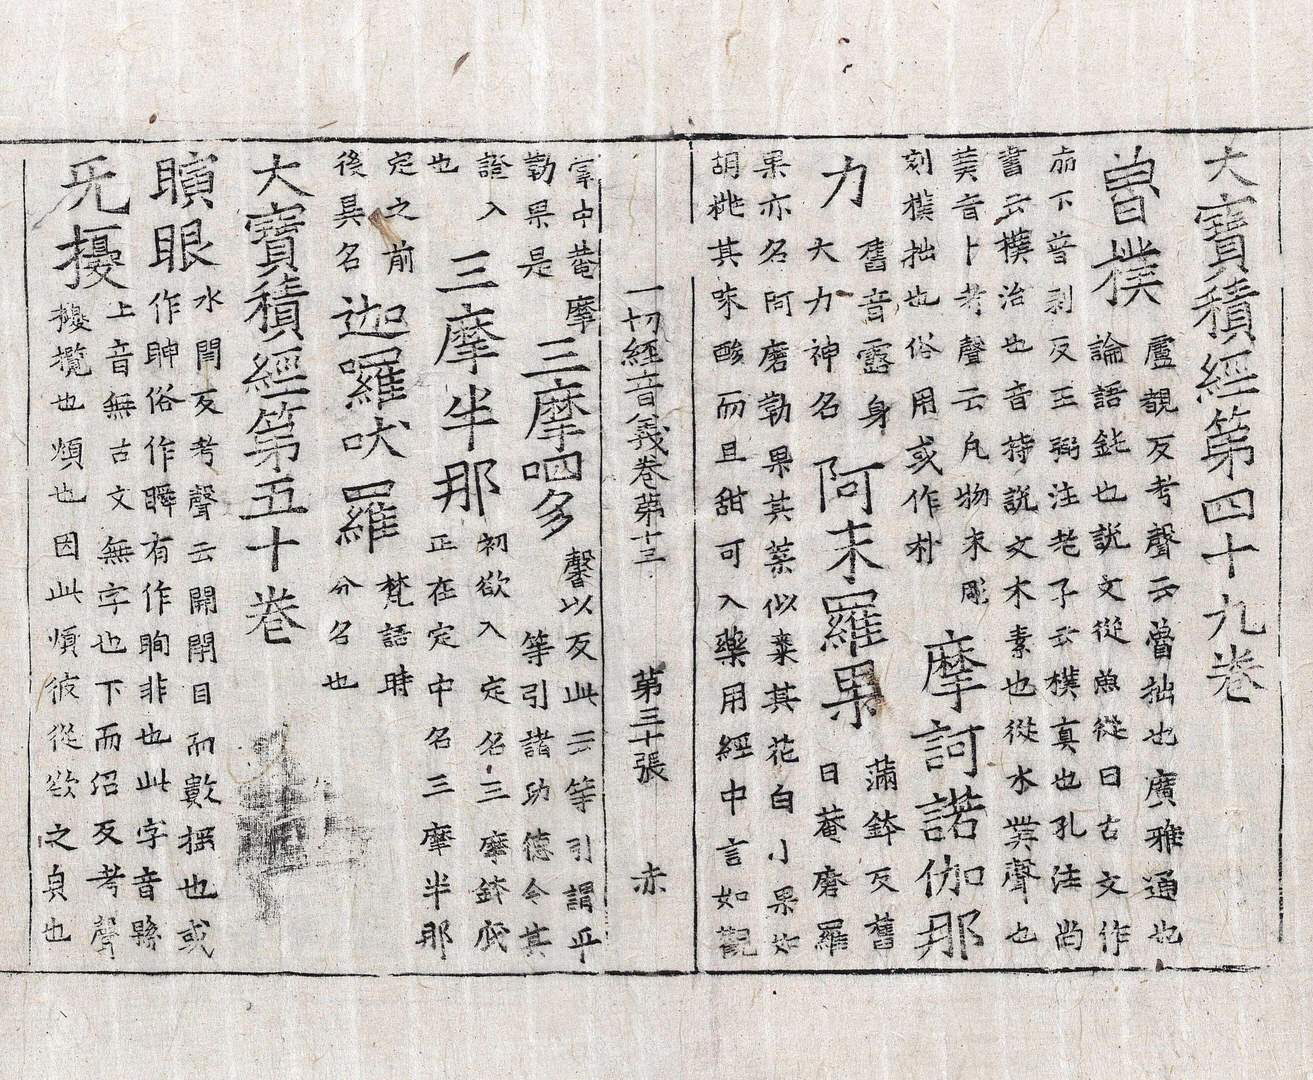 大寶積經第四十九卷
曾樸
盧覩反考聲云曾拙也廣雅通也
論語鈍也說文從魚從日古文作
下普剥反王弼注老子云樸真也孔注尚
書云樸治也音持說文木素也從木菐聲也
美音卜考聲云凡物未彫
刻樸拙也俗用或作朴
摩訶諾伽那
力
舊音露身
大力神名
阿末羅果
滿鉢反舊
曰菴磨羅
果亦名阿磨勒果其葉似棗其花白小果如
胡桃其味酸而且甜可入藥用經中言如觀
一切經音義卷第十三 第三十張 赤
掌中菴摩
勒果是
三摩呬多
馨以反此云等引謂平
等引諸功德令其
證入
也
三摩半那
初欲入定名三摩鉢底
正在定中名三摩半那
定之前
後異名
迦囉吠羅
梵語時
分名也
大寶積經第五十卷
瞚眼
水閏反考聲云開閇目而數搖也或
作眒俗作瞬有作瞤非也此字音縣
旡擾
上音無古文無字也下而沼反考聲
擾攪也煩也因此煩彼從欲之皃也